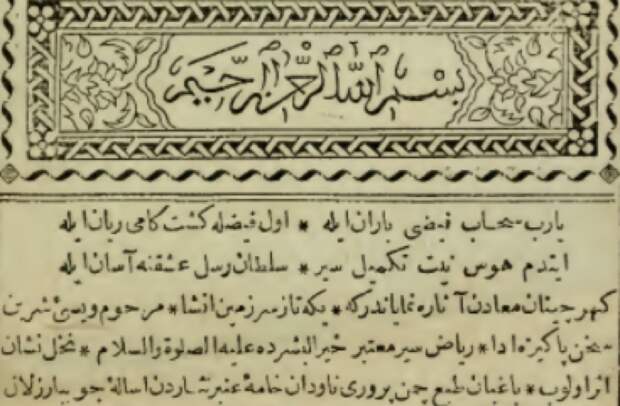 بسم الله الرحمن الرحيم
يارب سحاب فيضى باران ايله * اول فيضله كشت كامى ريان ايله
ايتدم هوس نيت تكميل سير * سلطان رسل عشقنه آسان ايله
كهر چينان معادن آثاره نماياندركه * يكه تاز سرزمين انشا * مرحوم ويسئ شيرين
سخن پاكيزه ادا * رياض سير معتبر خير البشرده عليه الصلوة والسلام * نخل نشان
اثر اولوب * باغبان طبع چمن پرورى ناودان خامۀ عنبر نثاردن اسالۀ جويبار زلال